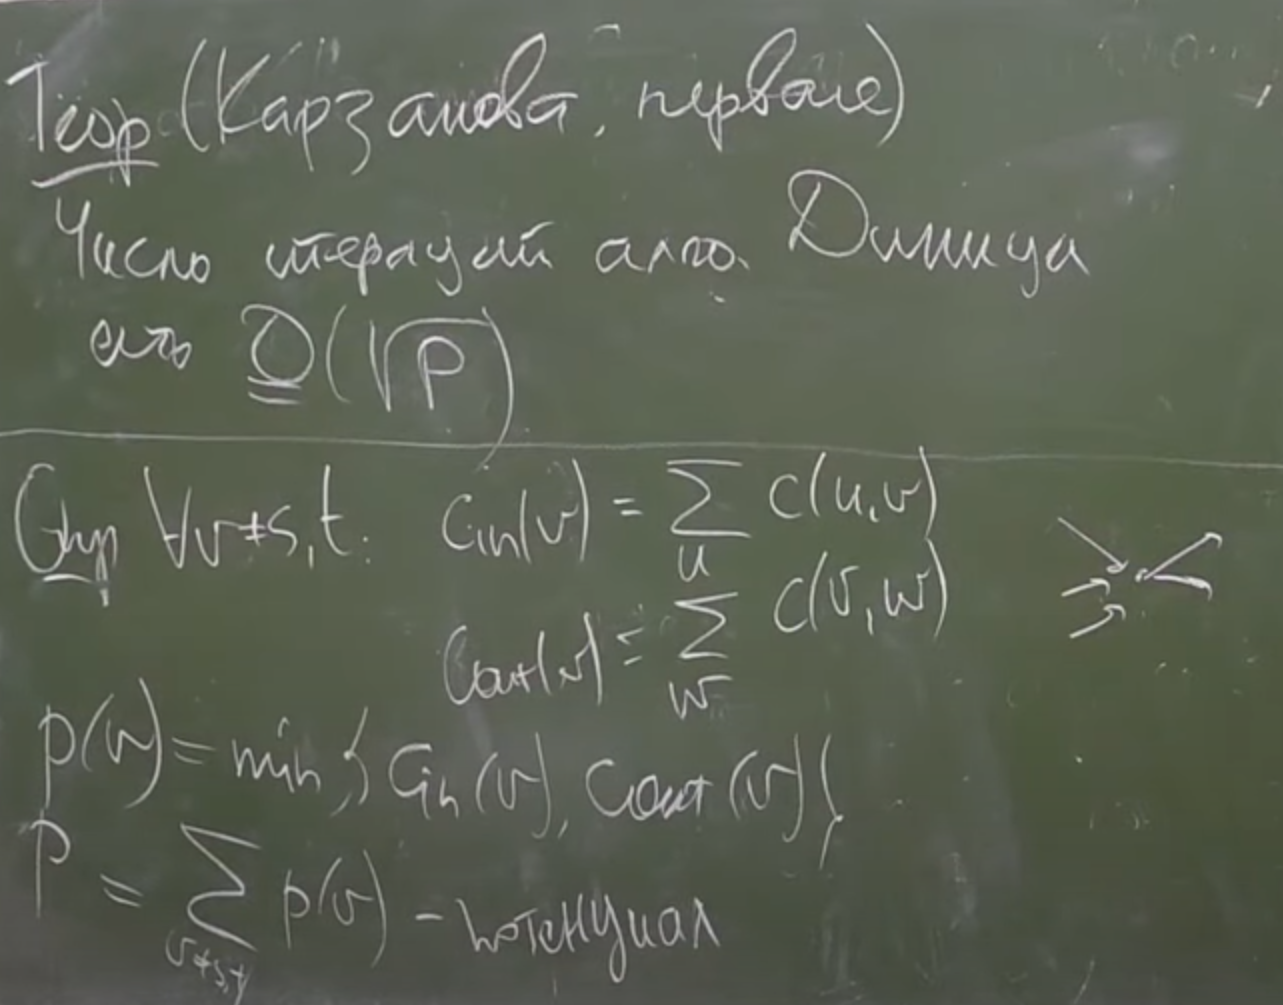 Теор (Карзанова, первая)
Число итераций алго. Диница
есть O(√P)
Опр ∀v≠s,t: Cin(v) = ∑ c(u,v)
u
Cout(v) = ∑ c(v,w)
w
p(v) = min { Cin(v), Cout(v) }
P = ∑ p(v) - потенциал
v≠s,t